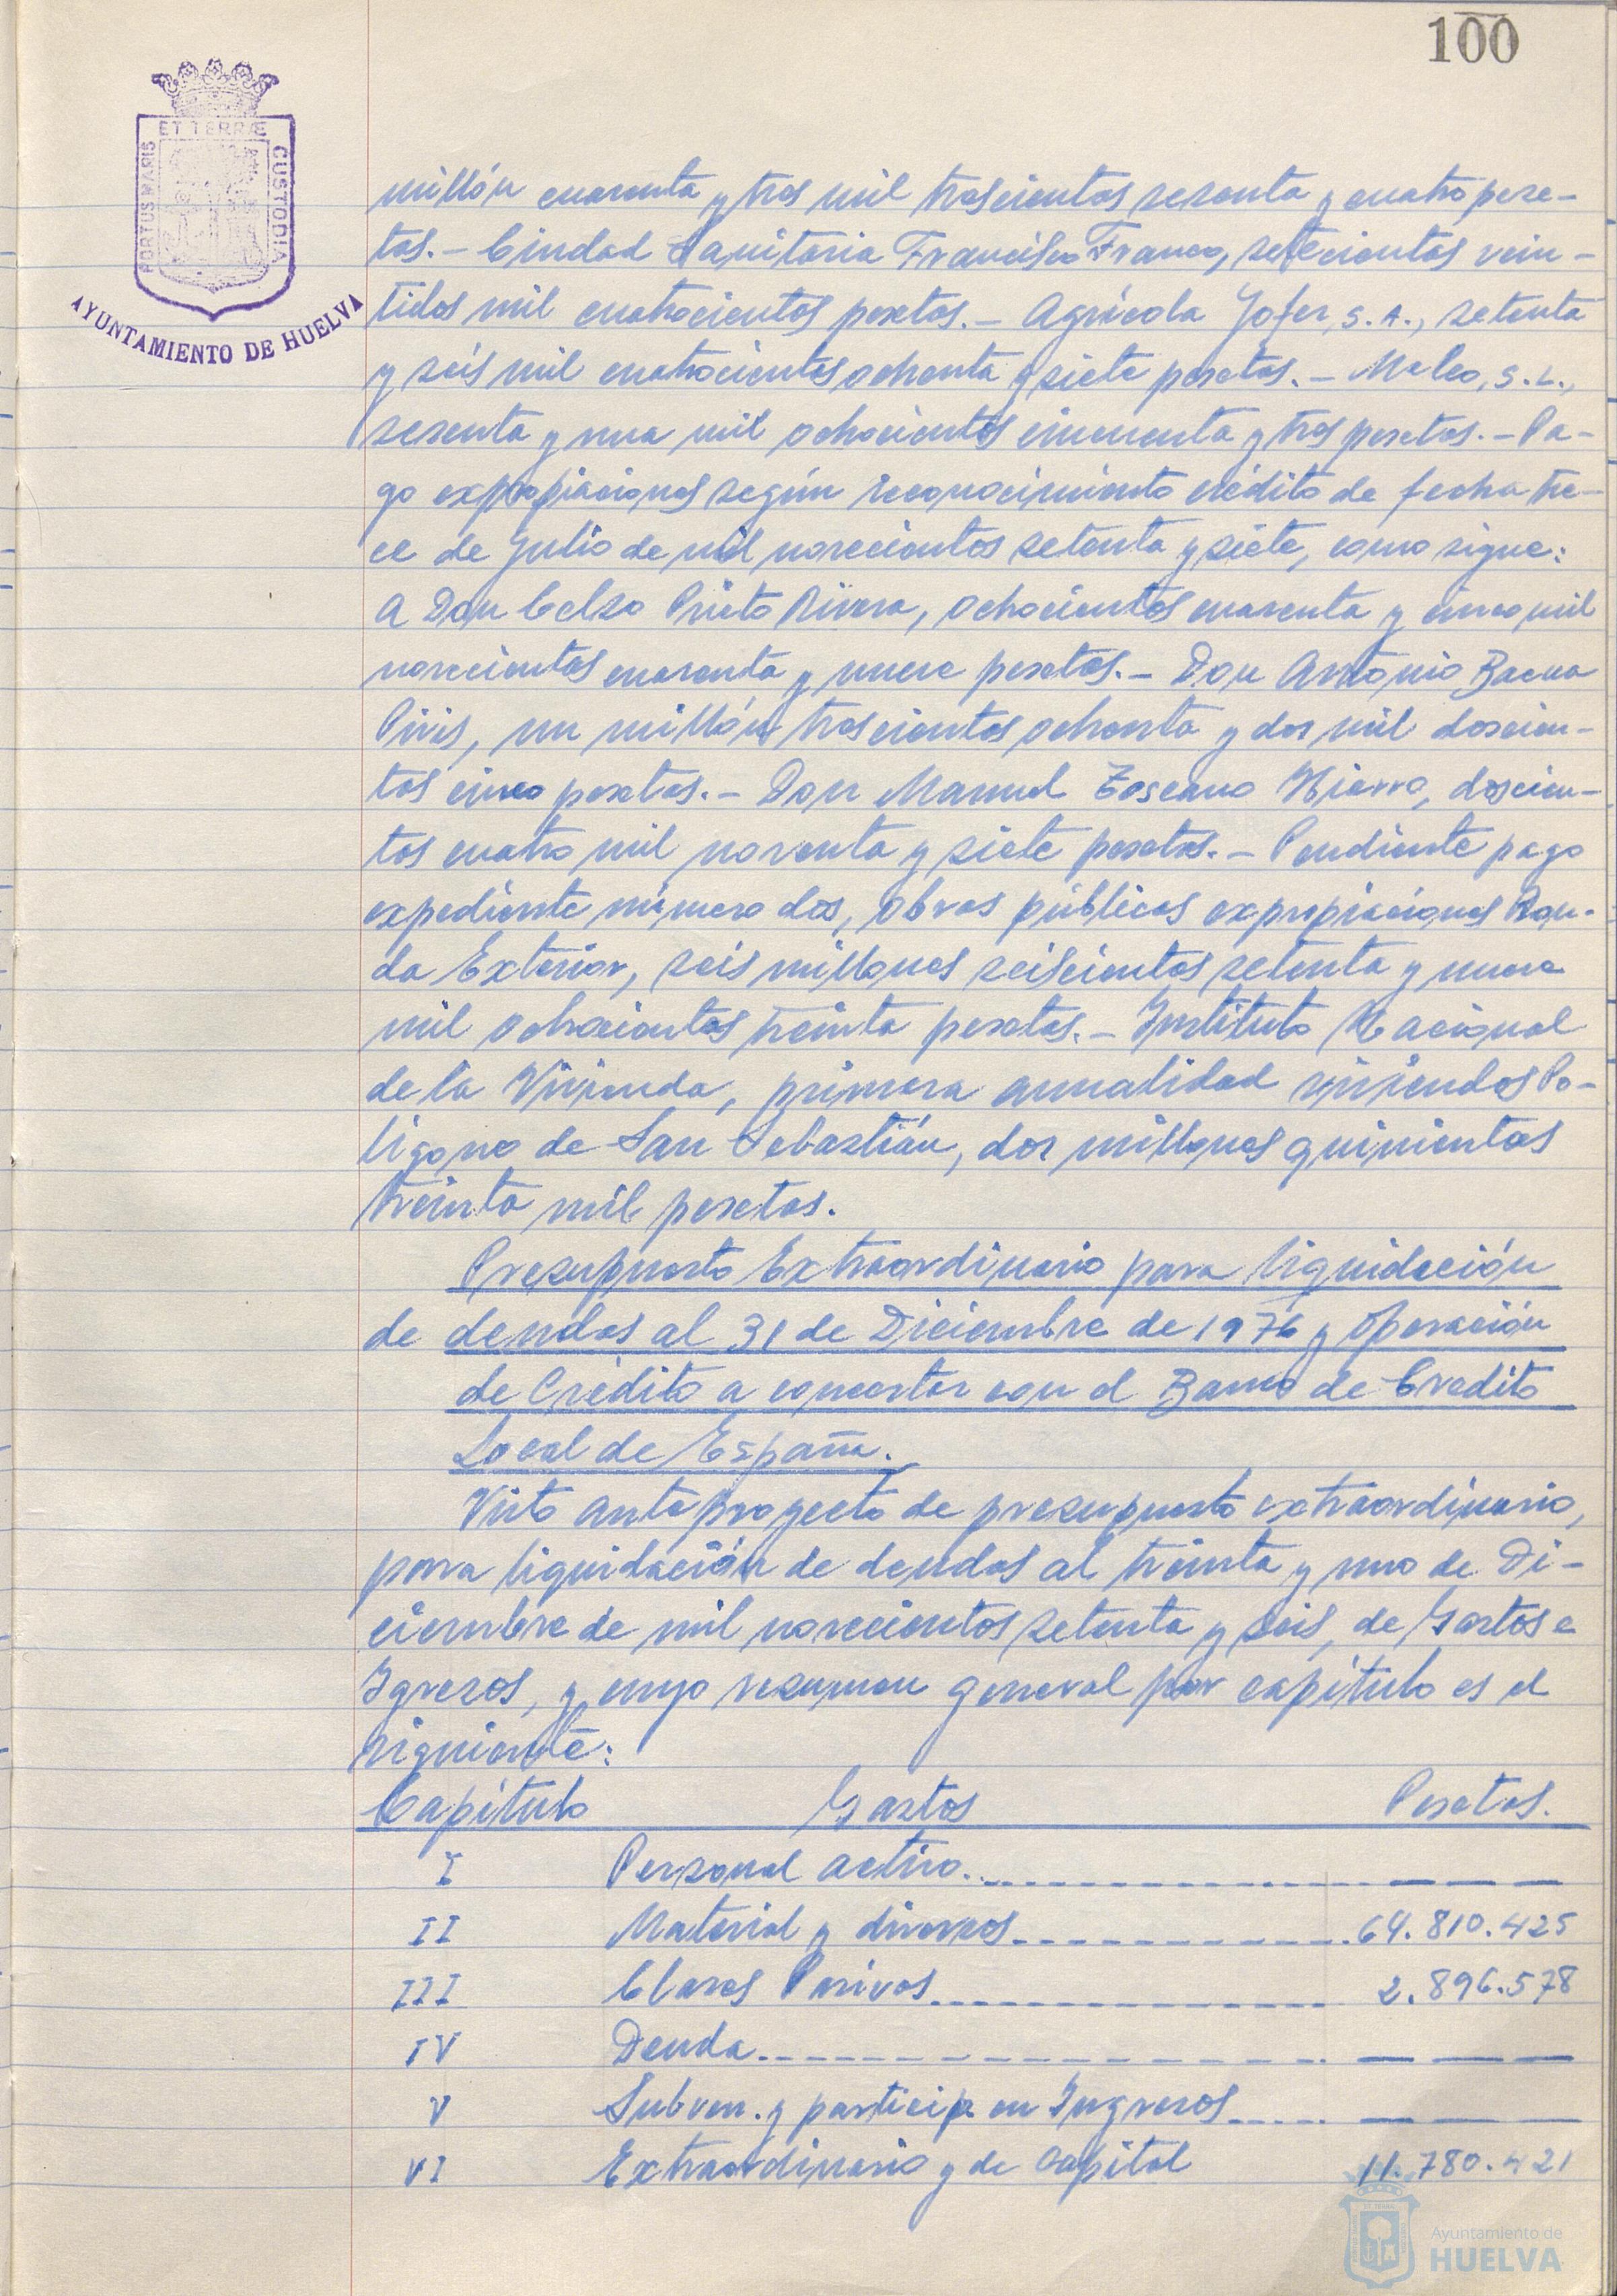 100
PORTUS MARIS ET TERRÆ CUSTODIA
AYUNTAMIENTO DE HUELVA
millón cuarenta y tres mil trescientas sesenta y cuatro pese-
tas.- Ciudad Sanitaria Francisco Franco, setecientas vein-
tidos mil cuatrocientas pesetas.- Agrícola Yofer, S.A., setenta
y seis mil cuatrocientas ochenta y siete pesetas.- Malco, S.L.,
sesenta y una mil ochocientas cincuenta y tres pesetas.- Pa-
go expropiaciones según reconocimiento crédito de fecha tre-
ce de Julio de mil novecientos setenta y siete, como sigue:
A Don Celso Prieto Rivera, ochocientas cuarenta y cinco mil
novecientas cuarenta y nueve pesetas.- Don Antonio Baena
Piris, un millón trescientas ochenta y dos mil doscien-
tas cinco pesetas.- Don Manuel Toscano Hierro, doscien-
tas cuatro mil noventa y siete pesetas.- Pendiente pago
expediente número dos, obras públicas expropiaciones Ron-
da Exterior, seis millones seiscientas setenta y nueve
mil ochocientas treinta pesetas.- Instituto Nacional
de la Vivienda, primera anualidad viviendas Po-
lígono de San Sebastián, dos millones quinientas
treinta mil pesetas.
Presupuesto Extraordinario para liquidación
de deudas al 31 de Diciembre de 1976 y Operación
de Crédito a concertar con el Banco de Credito
Local de España.
Visto anteproyecto de presupuesto extraordinario,
para liquidación de deudas al treinta y uno de Di-
ciembre de mil novecientos setenta y seis, de Gastos e
Igresos, y cuyo resumen general por capítulo es el
siguiente:
Capítulo Gastos Pesetas.
I Personal activo.. ---------- — — —
II Material y diversos ---------- 64.810.425
III Clases Pasivas ---------- 2.896.578
IV Deuda ---------- — — —
V Subven. y particip. en Ingresos ----- — — —
VI Extraordinario y de capital 11.780.421
Ayuntamiento de
HUELVA